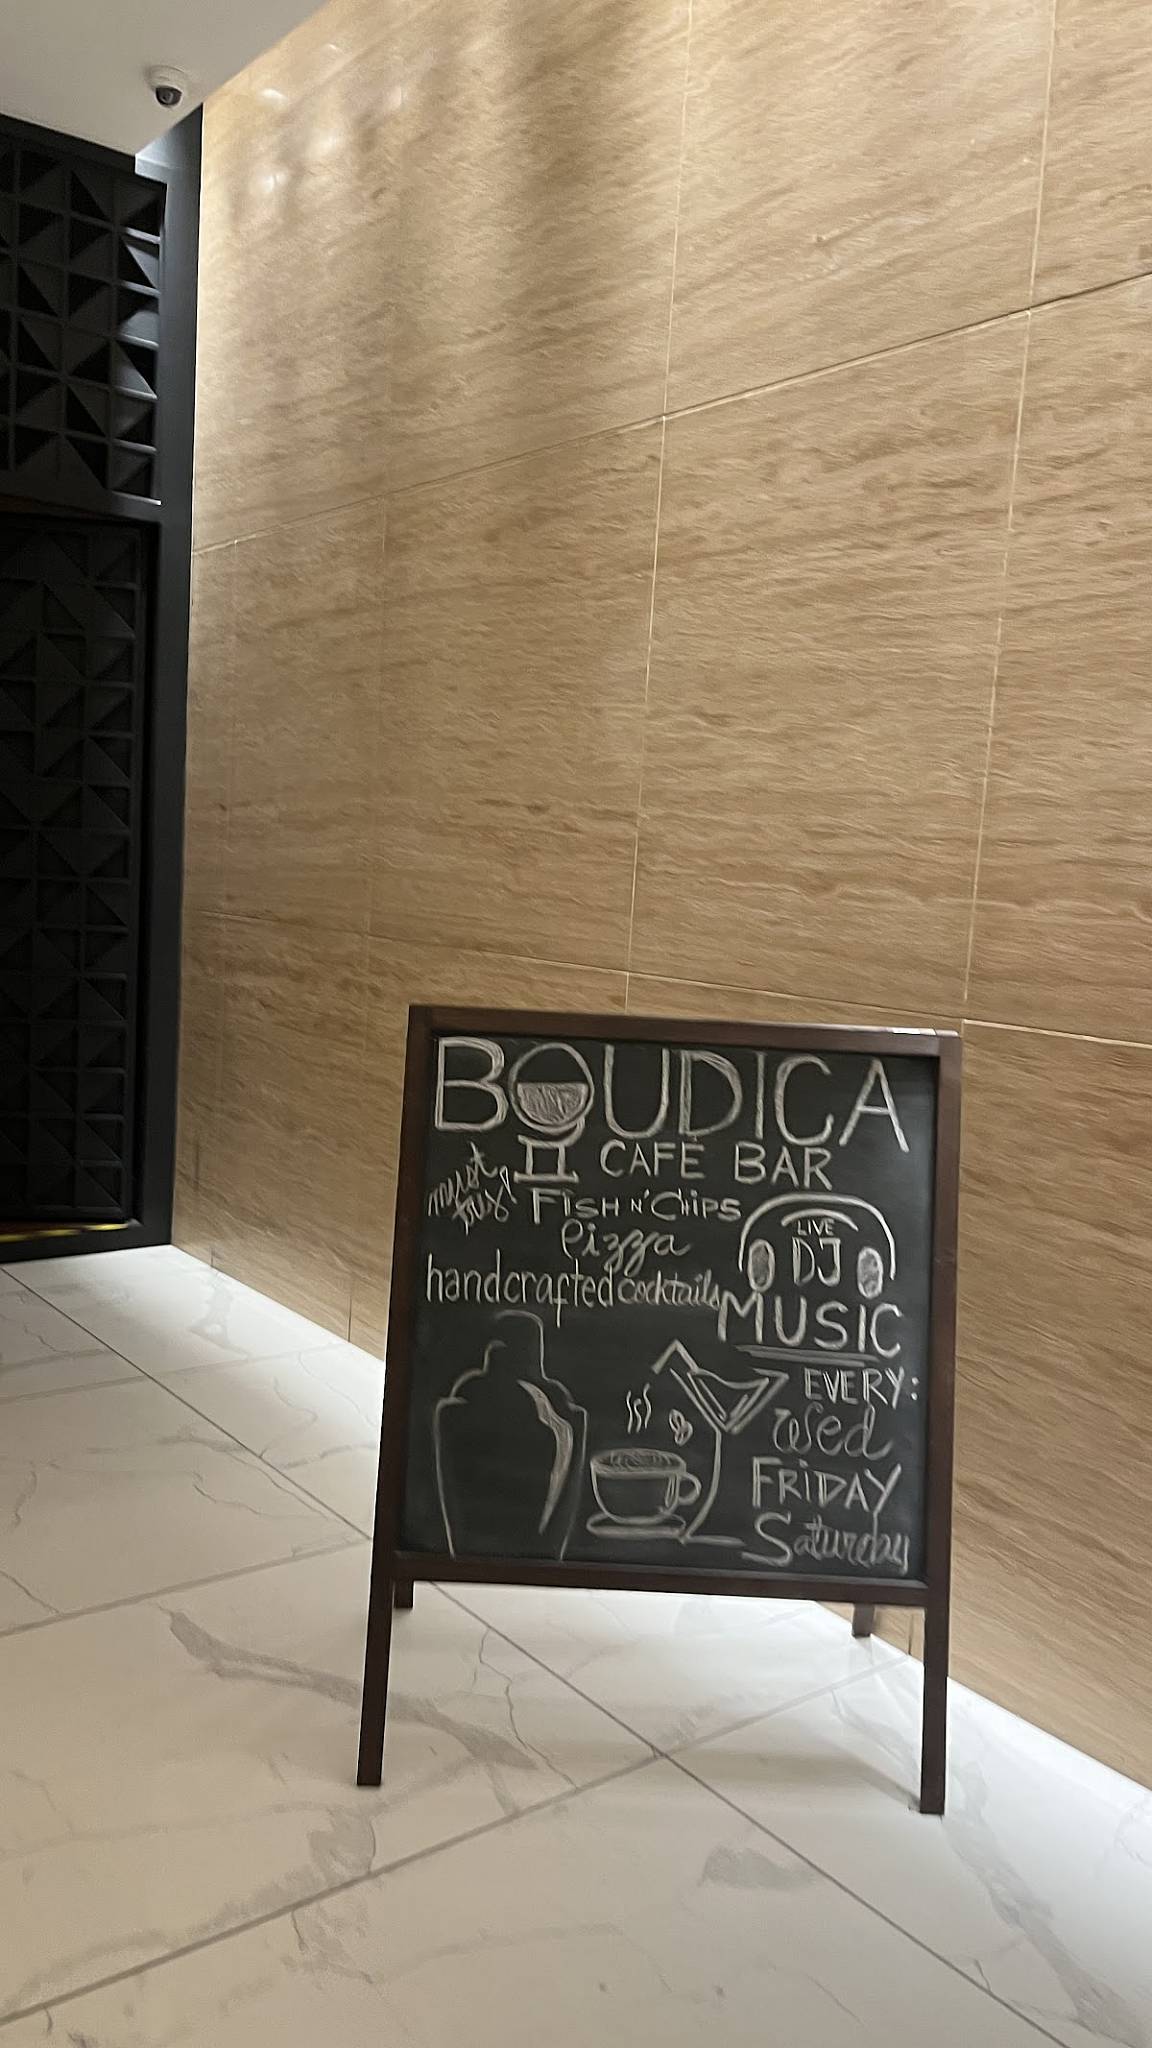 BOUDICA
CAFÉ BAR
must try!
FISH N' CHIPS
Pizza
handcrafted cocktails
LIVE
DJ
MUSIC
EVERY:
Wed
FRIDAY
Saturday